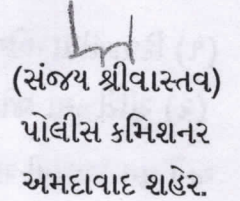 (સંજય શ્રીવાસ્તવ)
પોલીસ કમિશનર
અમદાવાદ શહેર.